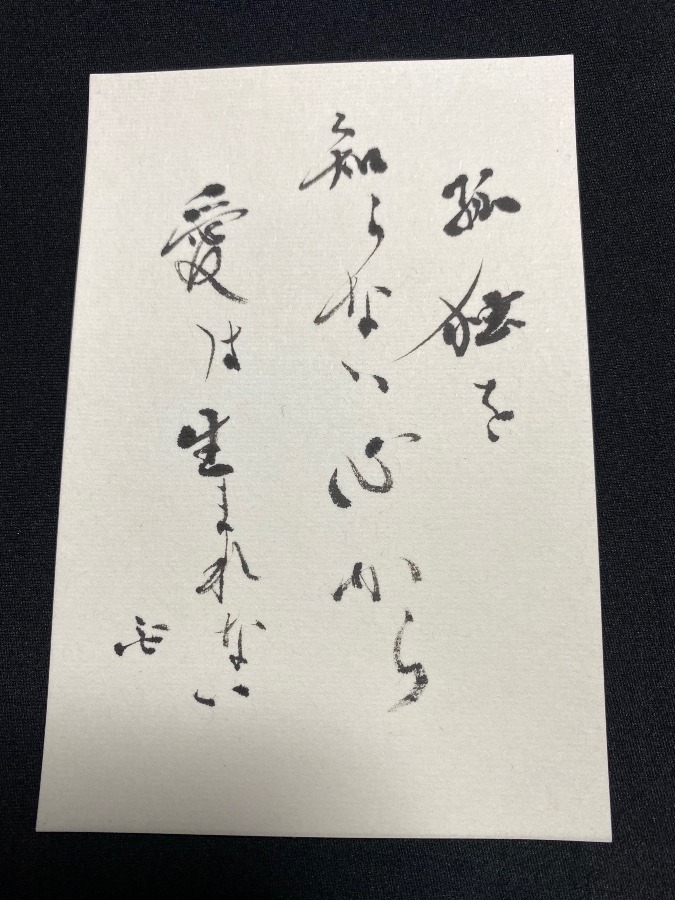 孤独を
知らない心から
愛は生まれない